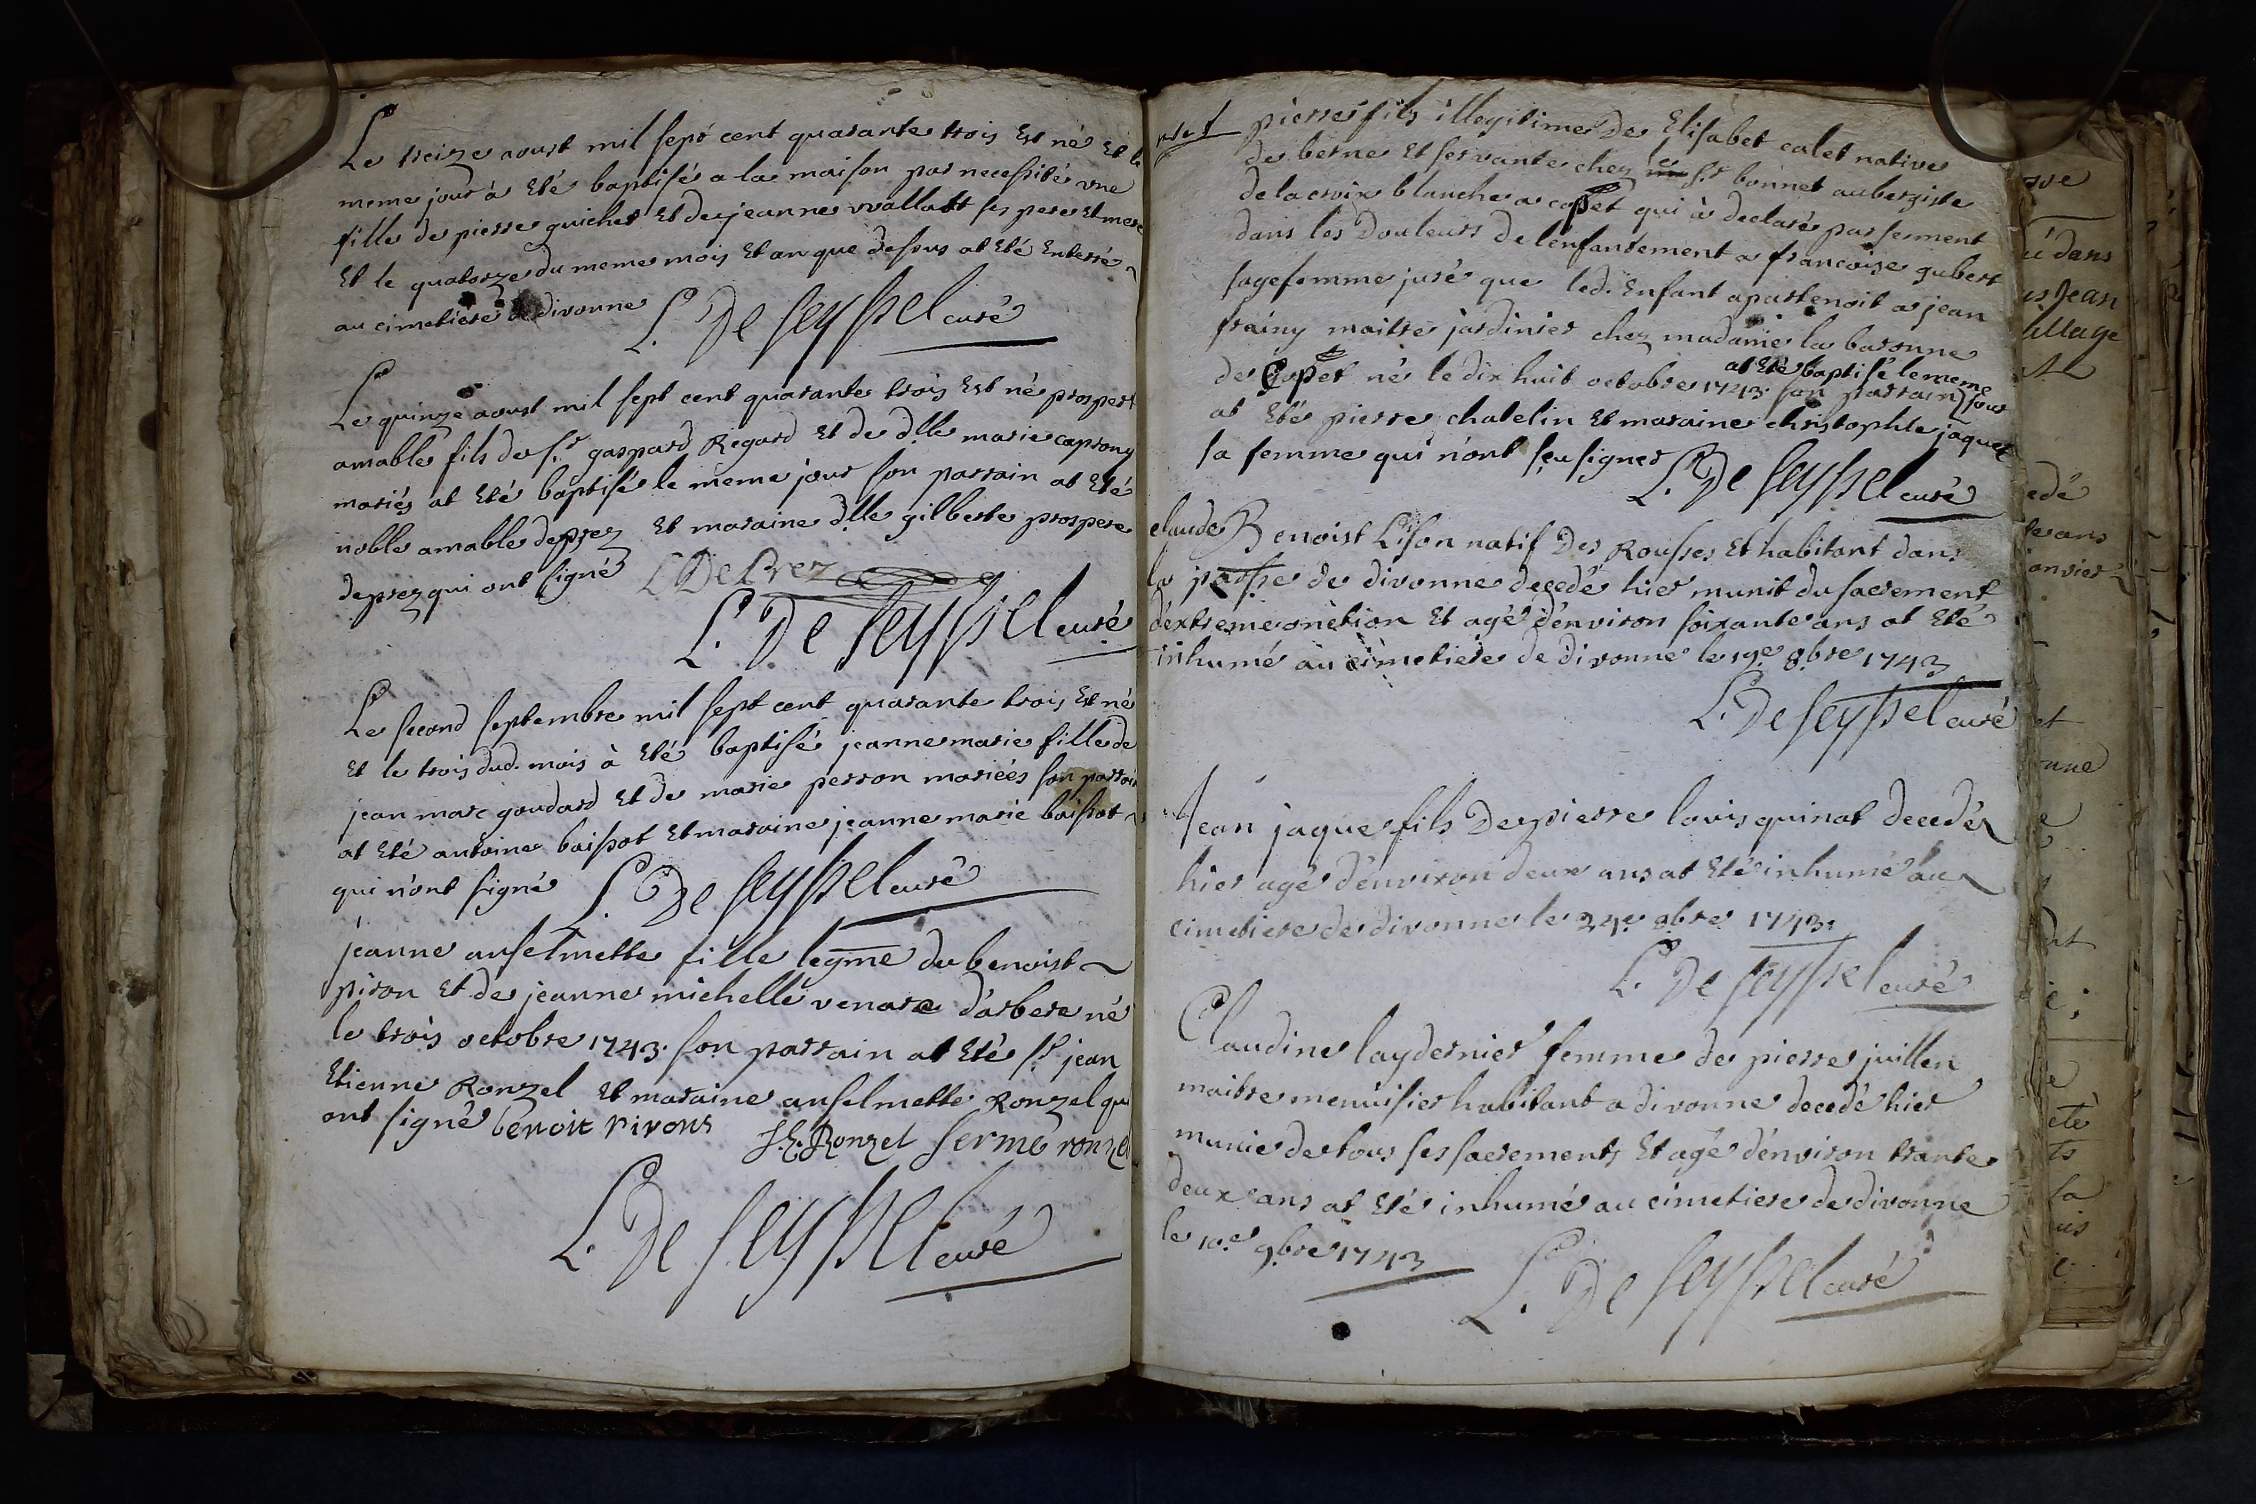 Le treize aoust mil sept cent quarante trois Est né Et le
meme jour à Eté baptisé a la maison par necessité une
fille de pierre guichet Et de jeanne vvallatt ses pere Et mere
Et le quatorze du meme mois Et an que dessus at Eté Enterré
au cimetiere de divonne L. De seyssel curé
Le quinze aoust mil sept cent quarante trois Est né prospert
amable fils de sr. gaspard Regard Et de dlle marie caprony
mariés at Eté baptisé le meme jour son parrain at Eté
noble amable deprez Et maraine dlle gilberte prospere
deprez qui ont signé DePrez
L. De seyssel curé
Le second septembre mil sept cent quarante trois Est né
Et le trois dud. mois à Eté baptisé jeanne marie fille de
jean marc goudard Et de marie perron mariéés son parrain
at Eté antoine baissot Et maraine jeanne marie baissot
qui n'ont signé L. De seyssel curé
jeanne anselmette fille legme du benoist
piron Et de jeanne michelle venare d'arbere né
le trois octobre 1743. son parrain at Eté sr. jean
Etienne Ronzel Et maraine anselmette Ronzel qui
ont signé benoit pirons J. E. Ronzel fermé ronzel
L. De seyssel curé
pierre fils illegitime de Elisabet calet native
de berne Et servante chez le sr. bonnet aubergiste
de la croix blanche a copet qui à declaré par serment
dans les Douleurs de l'enfantement a francoise gubert
sagefemme juré que led. Enfant apartenoit a jean
frainy maitre jardinier chez madame la baronne
at Eté baptisé le meme
de Copet né le dix huit octobre 1743. son parrain jour
at Eté pierre chatelin Et maraine christophle jaquet
sa femme qui n'ont sçu signer L. De seyssel curé
claude Benoist Lison natif Des Rousses Et habitant dans
la pañsse de divonne decedé hier munit du sacrement
d'extreme onction Et agé d'environ soixante ans at Eté
inhumé au cimetiere de divonne le 19e. 8.bre 1743
L. De seyssel curé
Jean jaque fils De pierre louis quinat decedé
hier agé d'environ deux ans at Eté inhumé au
cimetiere de divonne le 24e. 8bre 1743.
L. De seyssel curé
Claudine laydernier femme de pierre juillen
maitre menuisier habitant a divonne decedé hier
munie de tous ses sacrements Et agé d'environ trante
deux ans at Eté inhumé au cimetiere de divonne
le 10.e 9.bre 1743
L. De seyssel curé